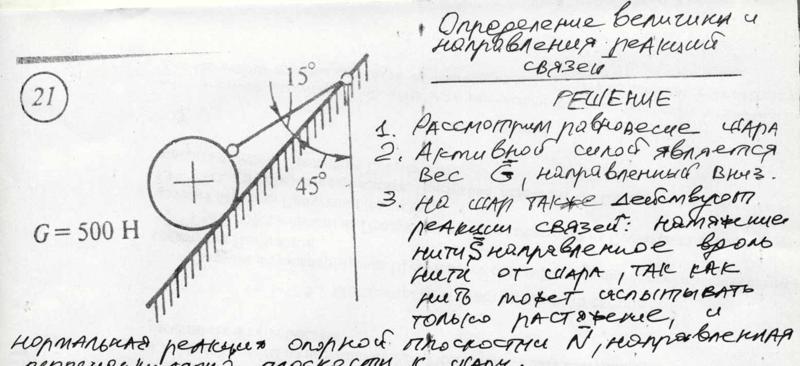 Определение величины и
направления реакций
связей
21
15°
РЕШЕНИЕ
1. Рассмотрим равновесие шара
2. Активной силой является
вес G, направленный вниз.
45°
3. На шар также действуют
реакции связей: натяжение
G = 500 Н
нити S направленное вдоль
нити от шара, так как
нить может испытывать
только растяжение, и
нормальная реакция опорной плоскости N, направленная
плоскости к шару.